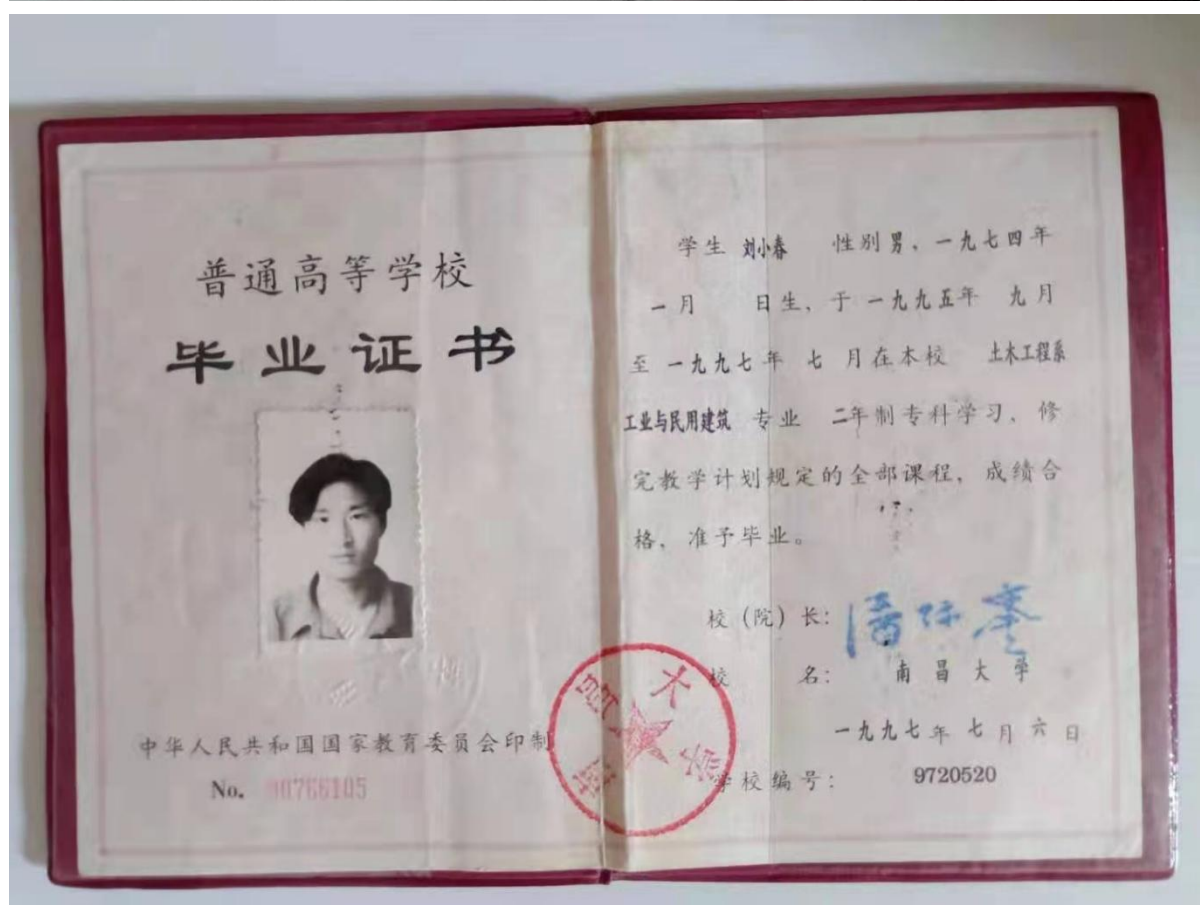 普通高等学校
毕业证书
中华人民共和国国家教育委员会印制
No. 00766105
学生 刘小春 性别 男、一九七四年
一月 日生，于 一九九五年 九月
至 一九九七年 七 月在本校 土木工程系
工业与民用建筑 专业 二年制专科学习，修
完教学计划规定的全部课程，成绩合
格，准予毕业。
校（院）长：潘际銮
校 名： 南昌大学
一九九七年七月六日
学校编号： 9720520
南昌大学